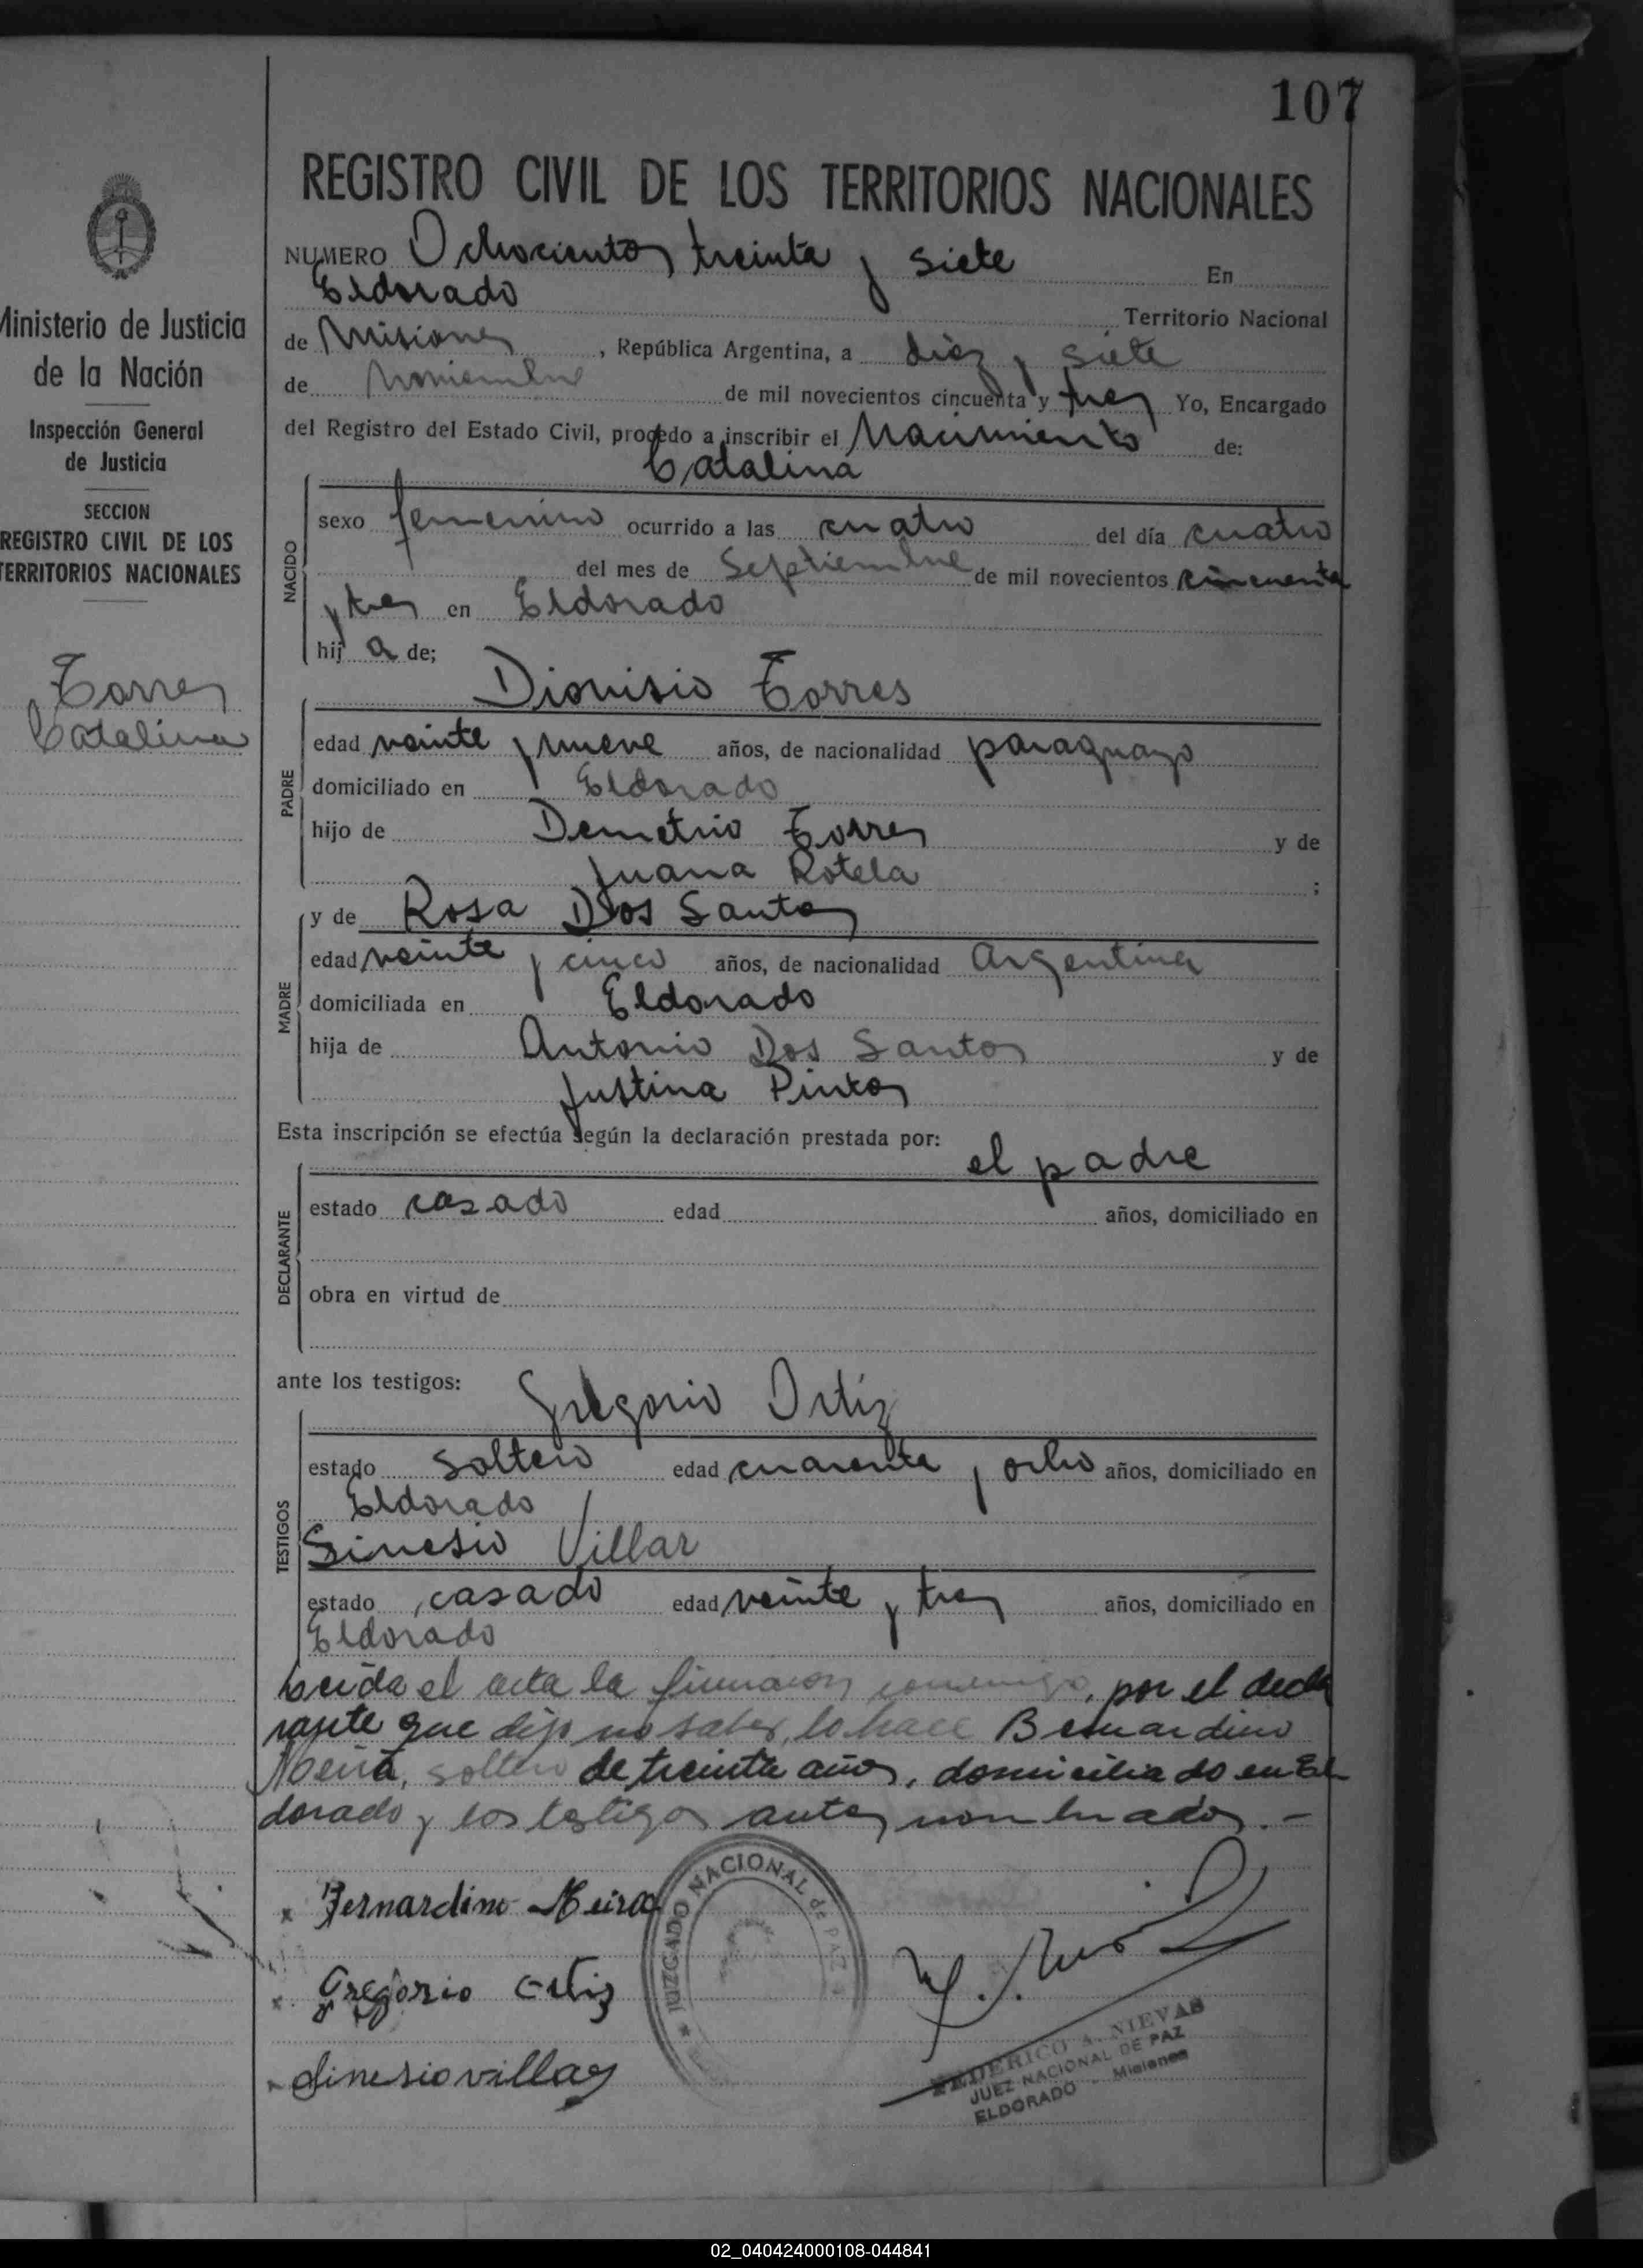 107
REGISTRO CIVIL DE LOS TERRITORIOS NACIONALES
Ministerio de Justicia
de la Nación
Inspección General
de Justicia
SECCION
REGISTRO CIVIL DE LOS
TERRITORIOS NACIONALES
Torres
Catalina
NUMERO Ochocientos treinta y siete En
Eldorado Territorio Nacional
de Misiones, República Argentina, a diez y siete
de Noviembre de mil novecientos cincuenta y tres Yo, Encargado
del Registro del Estado Civil, procedo a inscribir el Nacimiento de:
Catalina
NACIDO
sexo femenino ocurrido a las cuatro del día cuatro
del mes de Septiembre de mil novecientos cincuenta
y tres en Eldorado
hij a de;
Dionisio Torres
PADRE
edad veinte y nueve años, de nacionalidad paraguayo
domiciliado en Eldorado
hijo de Demetrio Torres y de
Juana Rotela ;
MADRE
y de Rosa Dos Santos
edad veinte y cinco años, de nacionalidad Argentina
domiciliada en Eldorado
hija de Antonio Dos Santos y de
Justina Pintos
Esta inscripción se efectúa según la declaración prestada por:
el padre
DECLARANTE
estado casado edad años, domiciliado en
obra en virtud de
ante los testigos:
Gregorio Ortiz
TESTIGOS
estado soltero edad cuarenta y ocho años, domiciliado en
Eldorado
Sinesio Villar
estado casado edad veinte y tres años, domiciliado en
Eldorado
Leida el acta la firmaron conmigo, por el decla
rante que dijo no saber, lo hace Bernardino
Neira, soltero de treinta años, domiciliado en El
dorado y los testigos antes nombrados. -
x Bernardino Neira
x. Gregorio Ortiz
x Sinesio villar
JUZGADO NACIONAL de PAZ
FEDERICO A. NIEVAS
JUEZ NACIONAL DE PAZ
ELDORADO - Misiones
02_040424000108-044841